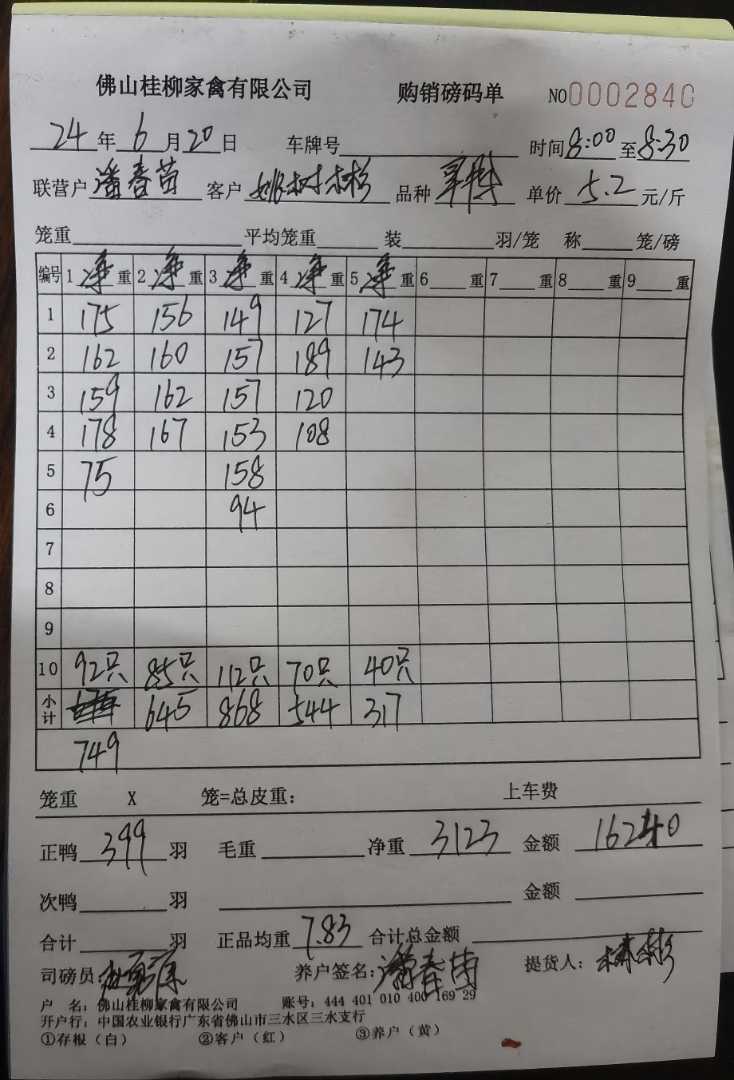 佛山桂柳家禽有限公司 购销磅码单 NO0002840
24年6月20日 车牌号 时间8:00至8:30
联营户潘春苗 客户姚树彬 品种 单价5.2元/斤
笼重 平均笼重 装 羽/笼 称 笼/磅
编号 1净重 2净重 3净重 4净重 5净重 6 重 7 重 8 重 9 重
1 175 156 149 127 174
2 162 160 157 189 143
3 159 162 157 120
4 178 167 153 108
5 75 158
6 94
7
8
9
10 92只 85只 112只 70只 40只
小计 645 868 544 317
749
笼重 X 笼=总皮重: 上车费
正鸭399羽 毛重 净重3123 金额16240
次鸭 羽 金额
合计 羽 正品均重7.83 合计总金额
司磅员: 养户签名:潘春苗 提货人:
户 名:佛山桂柳家禽有限公司 账号:444 401 010 400 169 29
开户行:中国农业银行广东省佛山市三水区三水支行
①存根(白) ②客户(红) ③养户(黄)